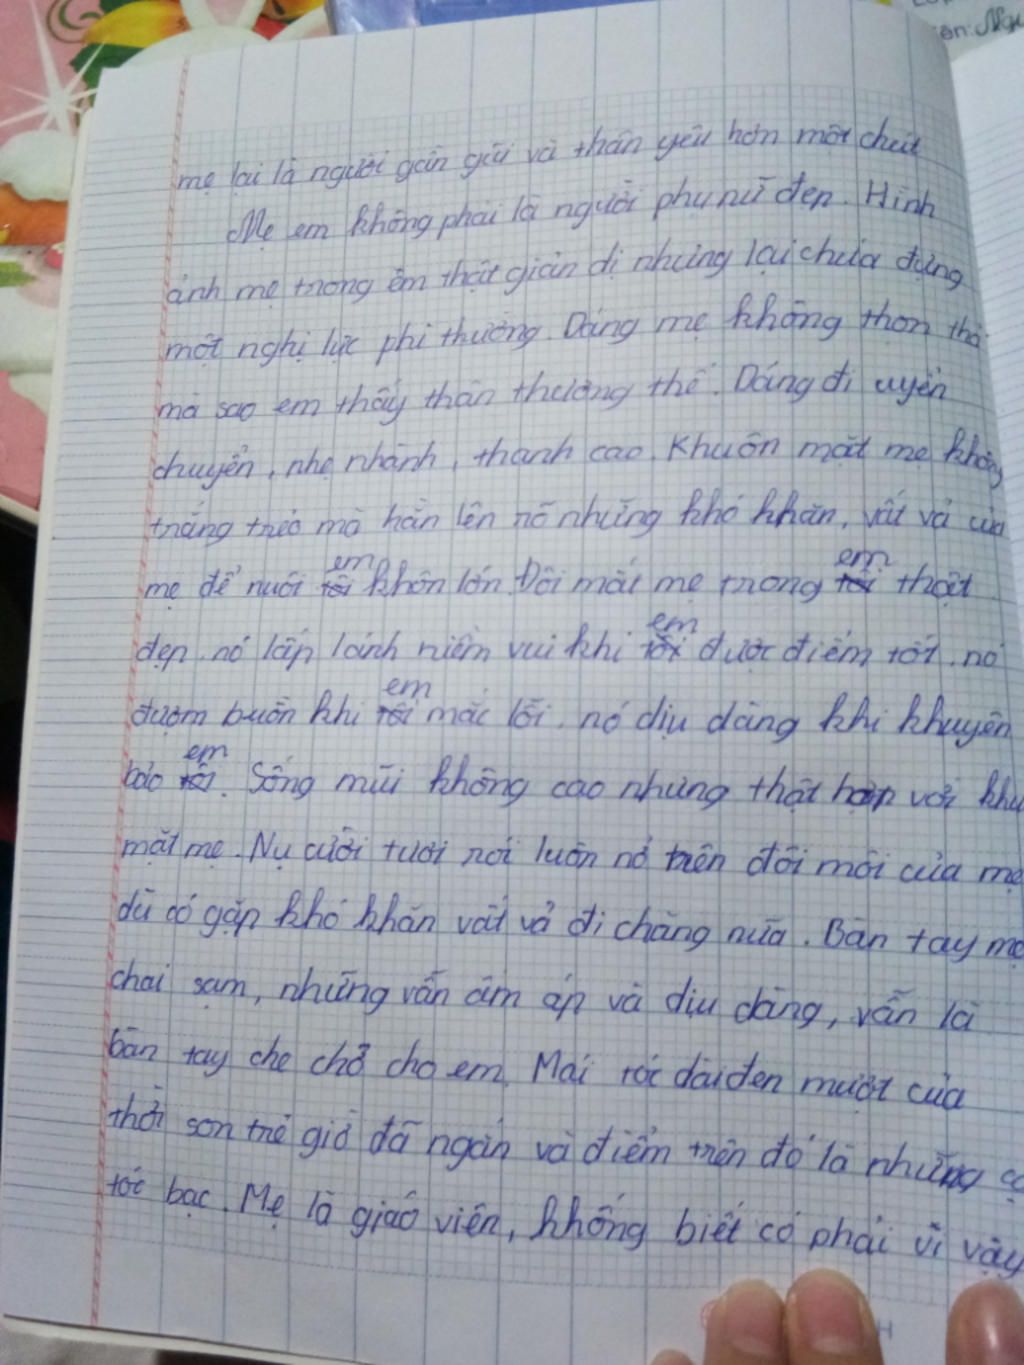 ên: Ngu
mẹ lại là người gần gũi và thân yêu hơn một chút
Mẹ em không phải là người phụ nữ đẹp. Hình
ảnh mẹ trong em thật giản dị nhưng lại chứa đựng
một nghị lực phi thường. Dáng mẹ không thon thả
mà sao em thấy thân thương thế. Dáng đi uyển
chuyển, nhẹ nhành, thanh cao. Khuôn mặt mẹ không
trắng trẻo mà hằn lên rõ những khó khăn, vất vả của
mẹ để nuôi em khôn lớn. Đôi mắt mẹ trong em thật
đẹp. nó lấp lánh niềm vui khi em được điểm tốt. nó
đượm buồn khi em mắc lỗi. nó dịu dàng khi khuyên
bảo em. Sống mũi không cao nhưng thật hợp với khu
mặt mẹ. Nụ cười tươi rói luôn nở trên đôi môi của mẹ
dù có gặp khó khăn vất vả đi chăng nữa. Bàn tay mẹ
chai sạm, những vẫn ấm áp và dịu dàng, vẫn là
bàn tay che chở cho em. Mái tóc dài đen mượt của
thời son trẻ giờ đã ngắn và điểm trên đó là những sợ
tóc bạc. Mẹ là giáo viên, không biết có phải vì vậy
H